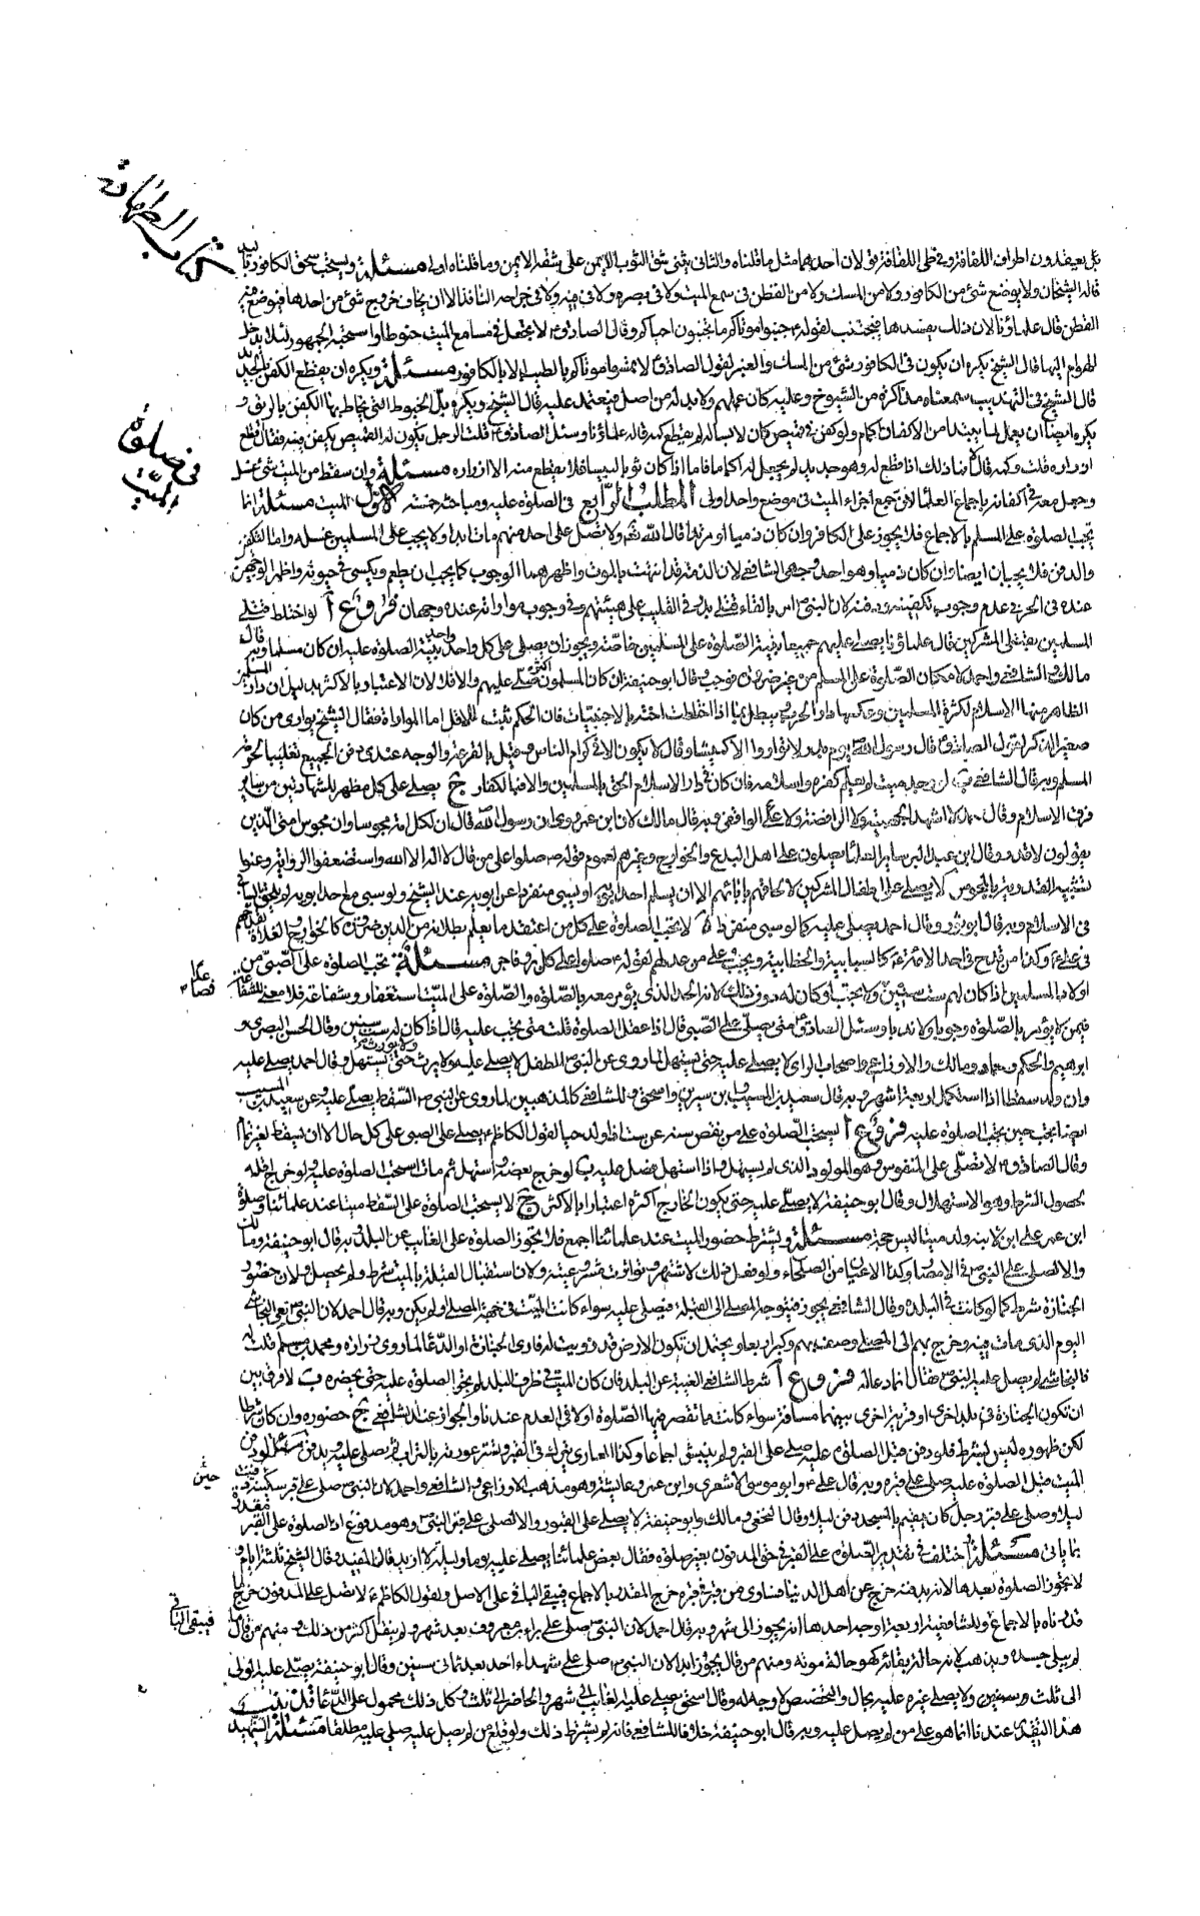 كتاب الطهارة
في صلوة
الميّت
بل يعقد دون اطراف اللفافة وفي طي اللفافة قولان احدهما مثل ما قلناه والثاني يثني شق الثوب الايمن على شقه الايمن وما قلناه اولى مسئلة ويستحب سحق الكافور باليد
قاله الشيخان ولا يوضع شئ من الكافور ولا من المسك ولا من القطن في سمع الميت ولا في بصره ولا في فيه ولا في جراحه النافذ الا ان يخاف خروج شئ من احدها فيوضع فيه
القطن قال علماؤنا لان ذلك يفسدها فيجتنب لقوله ع جنبوا موتاكم ما تجنبون احياكم وقال الصادق ع لا تجعل في مسامع الميت حنوطا واستحبه الجمهور لئلا يدخل
الهوام اليها قال الشيخ يكره ان يكون في الكافور شئ من المسك والعنبر لقول الصادق ع لا تمسوا موتاكم بالطيب الا بالكافور مسئلة ويكره ان يقطع الكفن بالحديد
قال الشيخ في التهذيب سمعناه مذاكرة من الشيوخ وعليه كان عملهم ولا بد له من اصل فيعتمد عليه قال الشيخ ويكره بل الخيوط التي يخاط بها الكفن بالريق و
يكره ايضا ان يعمل لما يبتدا من الاكفان اكمام ولو كفن في قميص كان لابسا له لم يقطع كمه قاله علماؤنا وسئل الصادق ع قلت الرجل يكون له القميص يكفن فيه فقال اقطع
ازراره قلت وكمه قال لا انما ذلك اذا قطع له وهو جديد لم يجعل له اكماما فاما اذا كان ثوبا لبيسا فلا يقطع منه الا ازراره مسئلة وان سقط من الميت شئ غسل
وجعل معه في اكفانه باجماع العلماء لان جمع اجزاء الميت في موضع واحد اولى المطلب الرابع في الصلوة عليه ومباحثه خمسة الاول الميت مسئلة انما
تجب الصلوة على المسلم بالاجماع فلا يجوز على الكافر وان كان ذميا او مرتدا قال الله تعالى ولا تصل على احد منهم مات ابدا ولا يجب على المسلمين غسله واما التكفين
والدفن فلا يجبان ايضا وان كان ذميا وهو احد وجهي الشافعي لان الذمة قد انتهت بالموت واظهرهما الوجوب كما يجب ان يطعم ويكسى في حيوته واظهر الوجهين
عنده في الحربي عدم وجوب تكفينه ودفنه لان النبي ص امر بالقاء قتلى بدر في القليب على هيئتهم وفي وجوب مواراته عنده وجهان فروع آ لو اختلط قتلى
المسلمين بقتلى المشركين قال علماؤنا يصلي عليهم جميعا بنية الصلوة على المسلمين خاصة ويجوز ان يصلي على كل واحد واحد بنية الصلوة عليه ان كان مسلما وبه قال
مالك والشافعي واحمد لامكان الصلوة على المسلم من غير ضرر فوجب وقال ابو حنيفة ان كان المسلمون اكثر صلى عليهم والا فلا لان الاعتبار بالاكثر بدليل ان دار المسلمين
الظاهر منها الاسلام لكثرة المسلمين وعكسها دار الحرب ويبطل بما اذا اختلطت اخته بالاجنبيات فان الحكم ثبت للاقل اما المواراة فقال الشيخ يوارى من كان
صغير الذكر لقول الصادق ع قال رسول الله ص يوم بدر لا تواروا الا كميشا وقال لا يكون الا في كرام الناس وقيل بالقرعة والوجه عندي دفن الجميع تغليبا لحرمة
المسلم وبه قال الشافعي ب لو وجد ميت لم يعلم كفره واسلامه فان كان في دار الاسلام الحق بالمسلمين والا فبالكفار ج يصلي على كل مظهر للشهادتين من ساير
فرق الاسلام وقال احمد لا اشهد الجهمية ولا الرافضة ولا على الواقفي وبه قال مالك لان ابن عمر روى ان رسول الله ص قال ان لكل امة مجوسا وان مجوس امتي الذين
يقولون لا قدر وقال ابن عبد البر ساير العلماء يصلون على اهل البدع والخوارج وغيرهم لعموم قوله ع صلوا على من قال لا اله الا الله واستضعفوا الرواية وعنوا
تشبيه القدرية بالمجوس د لا يصلي على اطفال المشركين لالحاقهم بابائهم الا ان يسلم احد ابويه او يسبى منفردا عن ابويه عند الشيخ ولو سبي مع احد ابويه لم يلحق بالسابي
في الاسلام وبه قال ابو ثور وقال احمد يصلي عليه كما لو سبي منفردا ه لا تجب الصلوة على كل من اعتقد ما يعلم بطلانه من الدين ضرورة كالخوارج والغلاة لقدحهم
في علي ع وكذا من قدح في احد الائمة ع كالسبابية والخطابية ويجب على من عداهم لقوله ع صلوا على كل بر وفاجر مسئلة تجب الصلوة على الصبي من
اولاد المسلمين اذا كان له ست سنين ولا يجب لو كان له دون ذلك لانه الحد الذي يؤمر معه بالصلوة والصلوة على الميت استغفار وشفاعة فلا معنى للشفاعة
عدا
فصاعدا
فيمن لا يؤمر بالصلوة وجوبا ولا ندبا وسئل الصادق ع متى يصلي على الصبي قال اذا عقل الصلوة قلت متى تجب عليه قال اذا كان له ست سنين وقال الحسن البصري و
ابرهيم والحكم وحماد ومالك والاوزاعي واصحاب الراي لا يصلي عليه حتى يستهل لما روي عن النبي ص الطفل لا يصلي عليه ولا يرث ولا يورث حتى يستهل وقال احمد يصلي عليه
وان ولد سقطا اذا استكمل اربعة اشهر وبه قال سعيد بن المسيب وابن سيرين واسحق وللشافعي كالمذهبين لما روي عن النبي ص السقط يصلى عليه وعن سعيد بن المسيب
ايضا تجب حين تجب الصلوة عليه فروع آ يستحب الصلوة على من نقص سنه عن ست اذا ولد حيا لقول الكاظم ع يصلي على الصبي على كل حال الا ان يسقط لغير تمام
وقال الصادق ع لا تصلي على المنفوس وهو المولود الذي لم يستهل واذا استهل فصل عليه ب لو خرج بعضه واستهل ثم مات استحب الصلوة عليه ولو خرج اقله
لحصول الشرط وهو الاستهلال وقال ابو حنيفة لا يصلى عليه حتى يكون الخارج اكثره اعتبارا بالاكثر ج لا يستحب الصلوة على السقط ميتا عند علمائنا وصلوة
ابن عمر على ابن لابنه ولد ميتا ليس حجة مسئلة ويشترط حضور الميت عند علمائنا اجمع فلا تجوز الصلوة على الغايب عن البلد وبه قال ابو حنيفة ومالك
والا لصلي على النبي ص في الامصار وكذا الاعيان من الصلحاء ولو فعل ذلك لاشتهر وتواتر مشروعيته ولان استقبال القبلة بالميت شرط ولم يحصل ولان حضور
الجنازة شرط كما لو كانت في البلد وقال الشافعي يجوز فيتوجه المصلي الى القبلة فيصلي عليه سواء كانت الميت في جهة المصلي او لم يكن وبه قال احمد لان النبي ص نعى النجاشي
اليوم الذي مات فيه وخرج بهم الى المصلى وصف بهم وكبر اربعا ويحتمل ان تكون الارض قد زويت له فاري الجنازة او الدعا لما روى زرارة ومحمد بن مسلم قلت له
فالنجاشي لم يصل عليه النبي ص فقال لا انما دعا له فروع آ شرط الشافعي الغيبة عن البلد فان كان الميت في طرف البلد لم يجز الصلوة عليه حتى يحضره ب لا فرق بين
ان تكون الجنازة في بلد اخرى او قرية اخرى بينهما مسافة سواء كانت ما تقصر فيها الصلوة اولا في العدم عندنا والجواز عند الشافعي ج حضوره وان كان شرطا
لكن ظهوره ليس بشرط فلو دفن قبل الصلوة عليه صلي على القبر ولم ينبش اجماعا وكذا العاري يترك في القبر ويستر عورته بالتراب ثم يصلي عليه ويدفن مسئلة لو دفن
حين
الميت قبل الصلوة عليه صلي على قبره وبه قال علي ع وابو موسى الاشعري وابن عمر وعايشة وهو مذهب الاوزاعي والشافعي واحمد لان النبي ص صلى على قبر مسكينة دفنت
ليلا وصلى على قبر رجل كان يقيم بالمسجد دفن ليلا وقال النخعي ومالك وابو حنيفة لا يصلي على القبور والا لصلي على قبر النبي ص وهو مدفوع اذ الصلوة على القبر مقدرة
بما ياتي مسئلة اختلف في تقدير الصلوة على القبر في حق المدفون بغير صلوة فقال بعض علمائنا يصلي عليه يوما وليلة لا ازيد قال المفيد وقال الشيخ ثلثة ايام و
لا تجوز الصلوة بعدها لانه بدفنه خرج عن اهل الدنيا فساوى من قبر في قبره خرج المقدر بالاجماع فيبقى الباقي على الاصل ولقول الكاظم ع لا تصل على المدفون خرج ما
فيبقى الباقي
قدرناه بالاجماع وللشافعية اربعة اوجه احدها انه يجوز الى شهر وبه قال احمد لان النبي ص صلى على البراء بن معرور بعد شهر ولم ينقل اكثر من ذلك ومنهم من قال ما
لم يبلى جسده ويذهب لانه حالة بقائه كهو حالة موته ومنهم من قال يجوز ابدا لان النبي ص صلى على شهداء احد بعد ثماني سنين وقال ابو حنيفة يصلي عليه الولي
الى ثلث ولا يصلي غيره عليه بحال والتخصيص لا وجه له وقال اسحق يصلي عليه الغايب الى شهر والحاضر الى ثلث وكل ذلك محمول على الدعا تذنيب
هذا التقدير عندنا انما هو على من لم يصل عليه وبه قال ابو حنيفة خلافا للشافعي فانه لم يشترط ذلك ولو قلع من لم يصل عليه صلي عليه مطلقا مسئلة الشهيد